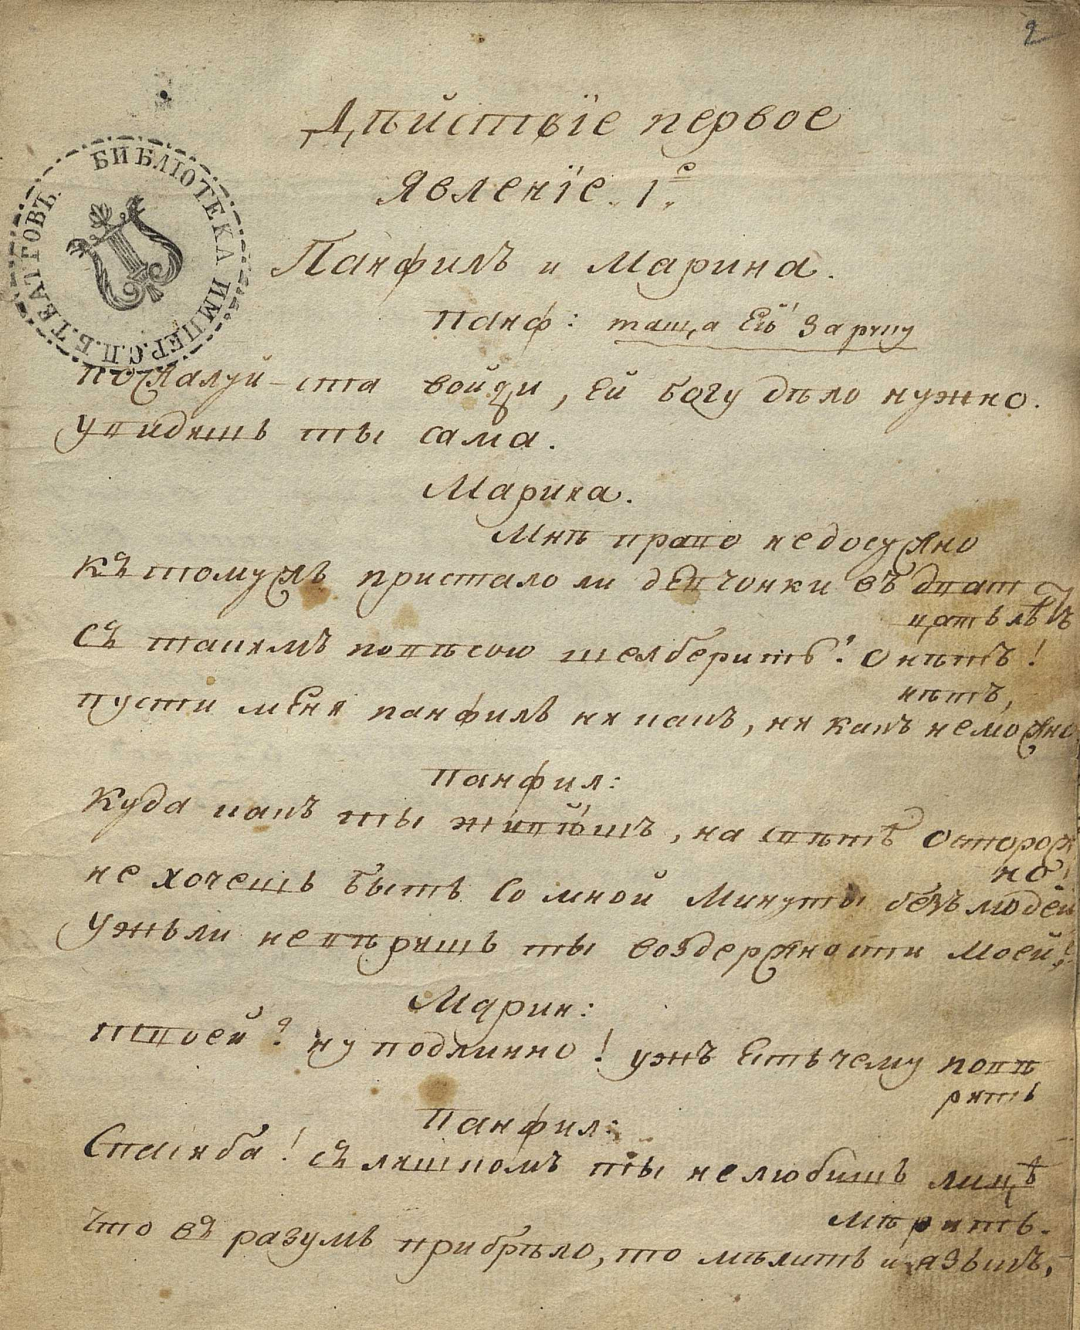 2
Дѣйствіе первое
явленіе. 1.е
БИБЛІОТЕКА ИМПЕР. С.П.Б. ТЕАТРОВЪ.
Панфилъ и Марина.
Панф: таща Её за руку
пожалуй-ста войди, ей богу дѣло нужно.
увидишь ты сама.
Марина.
Мнѣ право недосужно
къ томужъ пристало ли девчонки въ дват
цать лѣтъ
съ такимъ повѣсою шелберить? о нѣтъ!
нѣтъ,
пусти меня панфилъ ни какъ, ни какъ неможно
Панфил:
куда какъ ты живёшъ, на свѣтѣ осторож
но!
не хочешь быть со мной минуты безъ людей
ужьли невѣришь ты воздержности моей?
Марин:
твоей? ну подлинно! ужъ есть чему повѣ
рить
Панфил:
Спасиба! съ лишкомъ ты нелюбишь лицѣ
мѣрить.
что въ разумъ прибрѣло, то мѣлитъ и языкъ,